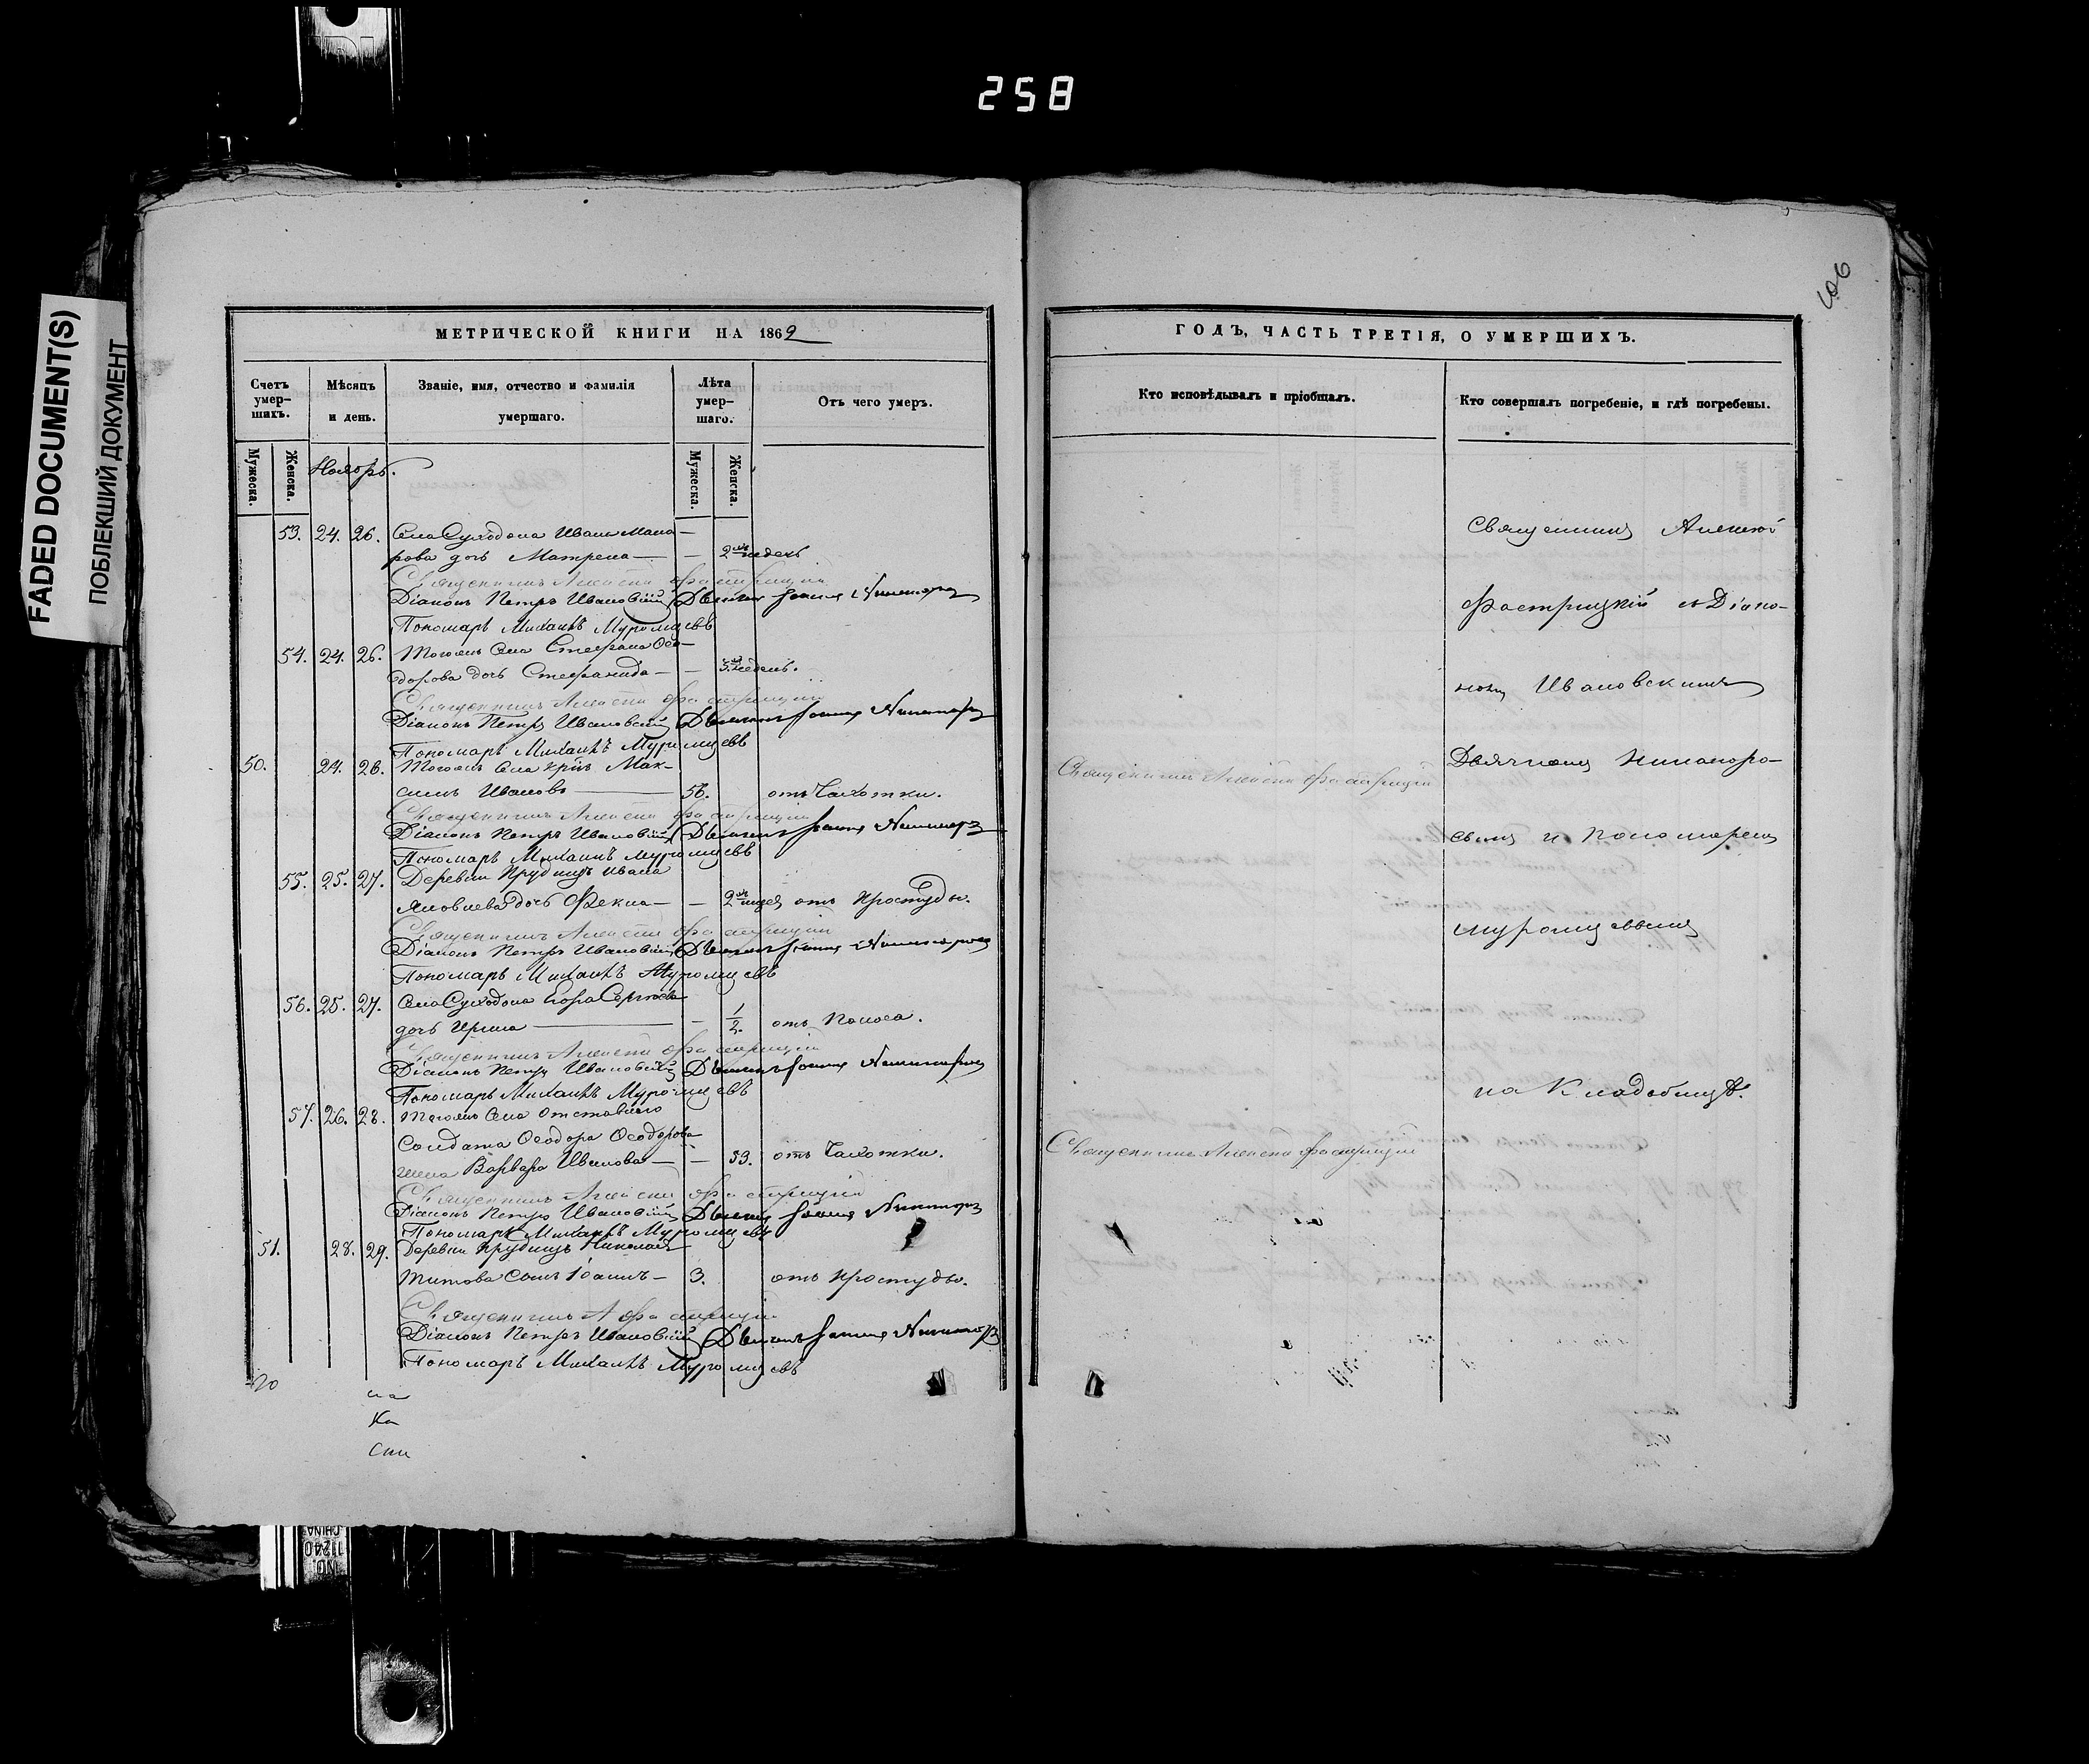 258
FADED DOCUMENT(S)
ПОБЛЕКШИЙ ДОКУМЕНТ
106
МЕТРИЧЕСКОЙ КНИГИ НА 1869
Счетъ умер-шихъ.
Мѣсяцъ и день.
Званіе, имя, отчество и фамилія умершаго.
Лѣта умер-шаго.
Отъ чего умеръ.
Мужеска.
Женска.
Мужеска.
Женска.
Ноябрь.
53. 24. 26. Села Суходола Ивана Мака-
рова дочь Матрена — — 2 недель
Священникъ Алексѣй
Діаконъ Петръ Ивановскій Дьячекъ Іоаннъ Никаноровъ
Пономарь Михаилъ Муромцевъ
54. 24. 26. Тогожъ Села Стефана Ѳео-
дорова дочь Стефанида — — 3 недель.
Священникъ Алексѣй
Діаконъ Петръ Ивановскій Дьячекъ Іоаннъ Никаноровъ
Пономарь Михаилъ Муромцевъ
50. 24. 26. Тогожъ Села Мак-
симъ Ивановъ — 56. отъ Чахотки.
Священникъ Алексѣй
Діаконъ Петръ Ивановскій Дьячекъ Іоаннъ Никаноровъ
Пономарь Михаилъ Муромцевъ
55. 25. 27. Деревни Прудищъ Ивана
Яковлева дочь Фекла — — 2 отъ Простуды.
Священникъ Алексѣй
Діаконъ Петръ Ивановскій Дьячекъ Іоаннъ Никаноровъ
Пономарь Михаилъ Муромцевъ
56. 25. 27. Села Суходола Сергѣева
дочь Ирина — — 1/2. отъ Поноса.
Священникъ Алексѣй
Діаконъ Петръ Ивановскій Дьячекъ Іоаннъ Никаноровъ
Пономарь Михаилъ Муромцевъ
57. 26. 28. Тогожъ Села Отставнаго
Солдата Ѳеодора Ѳеодорова
жена Варвара Иванова — — 33. отъ Чахотки.
Священникъ Алексѣй
Діаконъ Петръ Ивановскій Дьячекъ Іоаннъ Никаноровъ
Пономарь Михаилъ Муромцевъ
51. 28. 29. Деревни Прудищъ Николая
Титова сынъ Іоаннъ — 3. отъ Простуды.
Священникъ А
Діаконъ Петръ Ивановскій Дьячекъ Іоаннъ Никаноровъ
Пономарь Михаилъ Муромцевъ
ГОДЪ, ЧАСТЬ ТРЕТІЯ, О УМЕРШИХЪ.
Кто исповѣдывалъ и пріобщалъ.
Кто совершалъ погребеніе, и гдѣ погребены.
Священникъ Алексѣй
Священникъ Алексѣй
Священникъ Алексѣй
съ Діако-
номъ Ивановскимъ
Дьячкомъ Никаноро-
вымъ и Пономаремъ
Муромцевымъ
на Кладбищѣ.